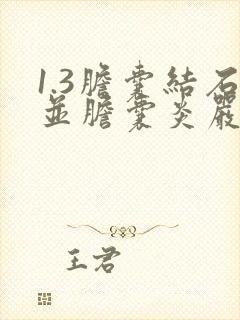 1.3膽囊結石
並膽囊炎嚴
王君